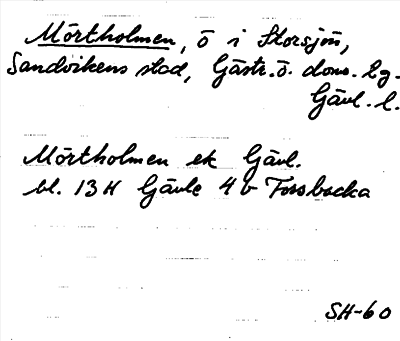 Mörtholmen, ö i Storsjön,
Sandvikens stad, Gästr. ö. doms. lg.
Gävl. l.
Mörtholmen ek Gävl.
bl. 13 H Gävle 4 b Forsbacka
SH-60